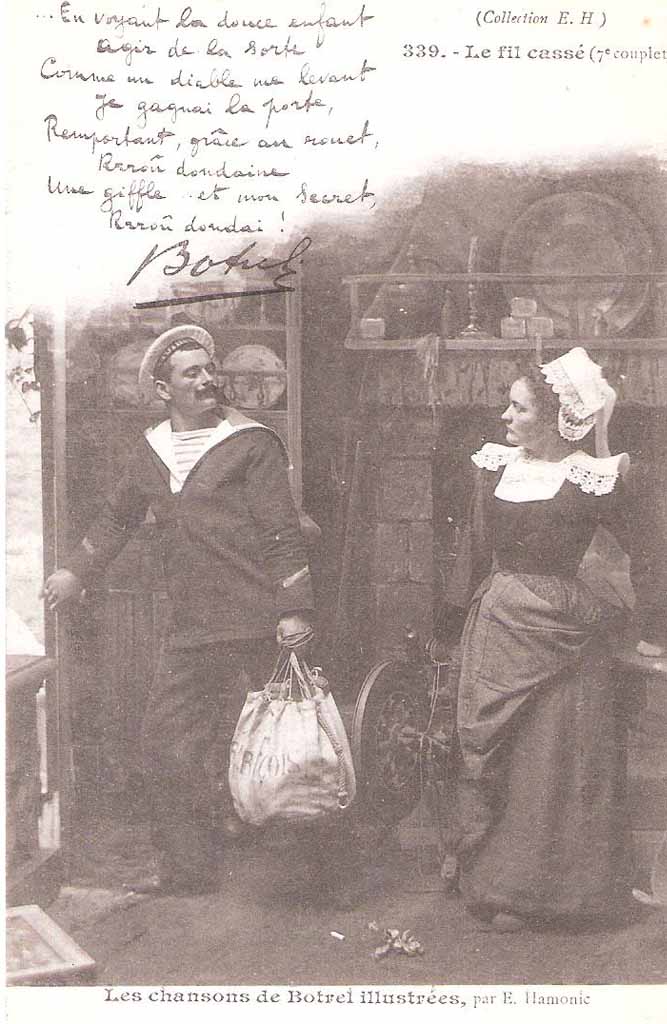 ...En voyant la douce enfant
agir de la sorte
Comme un diable me levant
Je gagnai la porte,
Remportant, grâce au rouet,
Rroû dondaine
Une giffle .. et mon secret,
Rroû dondai !
Botrel
(Collection E. H )
339. - Le fil cassé (7e couplet
Les chansons de Botrel illustrées, par E. Hamonic